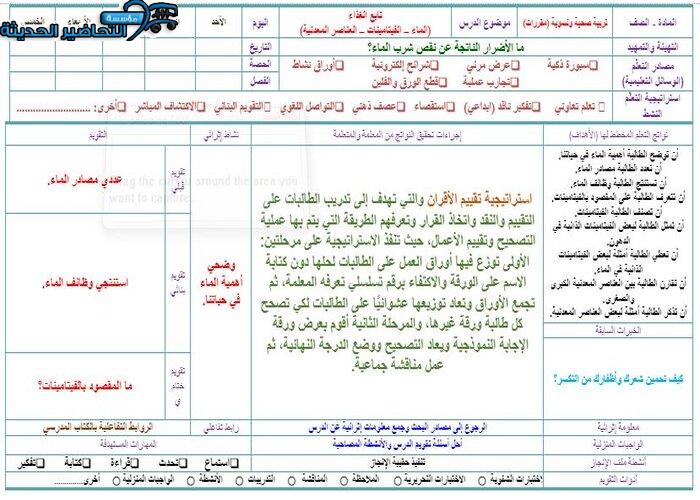 مؤسسة
التحاضير الحديثة
المادة - الصف
تربية صحية ونسوية (مقررات)
موضوع الدرس
تابع الغذاء
(الماء – الفيتامينات – العناصر المعدنية)
اليوم
الأحد
الأربعاء
الخميس
التهيئة والتمهيد
ما الأضرار الناتجة عن نقص شرب الماء؟
التاريخ
مصادر التعلم
(الوسائل التعليمية)
□سبورة ذكية □عرض مرئي □شرائح إلكترونية □أوراق نشاط
□تجارب عملية □قطع الورق والفلين
الحصة
الفصل
استراتيجية التعلم
النشط
□تعلم تعاوني □تفكير ناقد (إبداعي) □استقصاء □عصف ذهني □التواصل اللغوي □التقويم البنائي □الاكتشاف المباشر □أخرى: ............
نواتج التعلم المخطط لها (الأهداف)
إجراءات تحقيق النواتج من المعلمة والمتعلمة
نشاط إثرائي
التقويم
أن توضح الطالبة أهمية الماء في حياتنا.
أن تعدد الطالبة مصادر الماء.
أن تستنتج الطالبة وظائف الماء.
أن تتعرف الطالبة على المقصود بالفيتامينات.
أن تصنف الطالبة الفيتامينات.
أن تمثل الطالبة لبعض الفيتامينات الذائبة في
الدهون.
أن تعطي الطالبة أمثلة لبعض الفيتامينات
الذائبة في الماء.
أن تقارن الطالبة بين العناصر المعدنية الكبرى
والصغرى.
أن تذكر الطالبة أمثلة لبعض العناصر المعدنية.
الخبرات السابقة
كيف تحمين شعرك وأظفارك من التكسر؟
استراتيجية تقييم الأقران والتي تهدف إلى تدريب الطالبات على
التقييم والنقد واتخاذ القرار وتعرفهم الطريقة التي يتم بها عملية
التصحيح وتقييم الأعمال، حيث تنفذ الاستراتيجية على مرحلتين:
الأولى توزع فيها أوراق العمل على الطالبات لحلها دون كتابة
الاسم على الورقة والاكتفاء برقم تسلسلي تعرفه المعلمة، ثم
تجمع الأوراق وتعاد توزيعها عشوائيًا على الطالبات لكي تصحح
كل طالبة ورقة غيرها، والمرحلة الثانية أقوم بعرض ورقة
الإجابة النموذجية ويعاد التصحيح ووضع الدرجة النهائية، ثم
عمل مناقشة جماعية.
وضحي
أهمية الماء
في حياتنا.
تقويم
قبلي
عددي مصادر الماء.
around the area you
want to capture.
تقويم
بنائي
استنتجي وظائف الماء.
تقويم
ختام
ي
ما المقصود بالفيتامينات؟
معلومة إثرائية
الرجوع إلى مصادر البحث وجمع معلومات إثرائية عن الدرس
رابط تفاعلي
الروابط التفاعلية بالكتاب المدرسي
الواجبات المنزلية
أحل أسئلة تقويم الدرس والأنشطة المصاحبة
المهارات المستهدفة
أنشطة ملف الإنجاز
تنفيذ حقيبة الإنجاز
□استماع □تحدث □قراءة □كتابة □تفكير
أدوات التقويم
○ الاختبارات الشفوية ○ الاختبارات التحريرية ○ الملاحظة ○ المناقشة ○ التدريبات ○ الأنشطة ○ الواجبات المنزلية ○ أخرى............